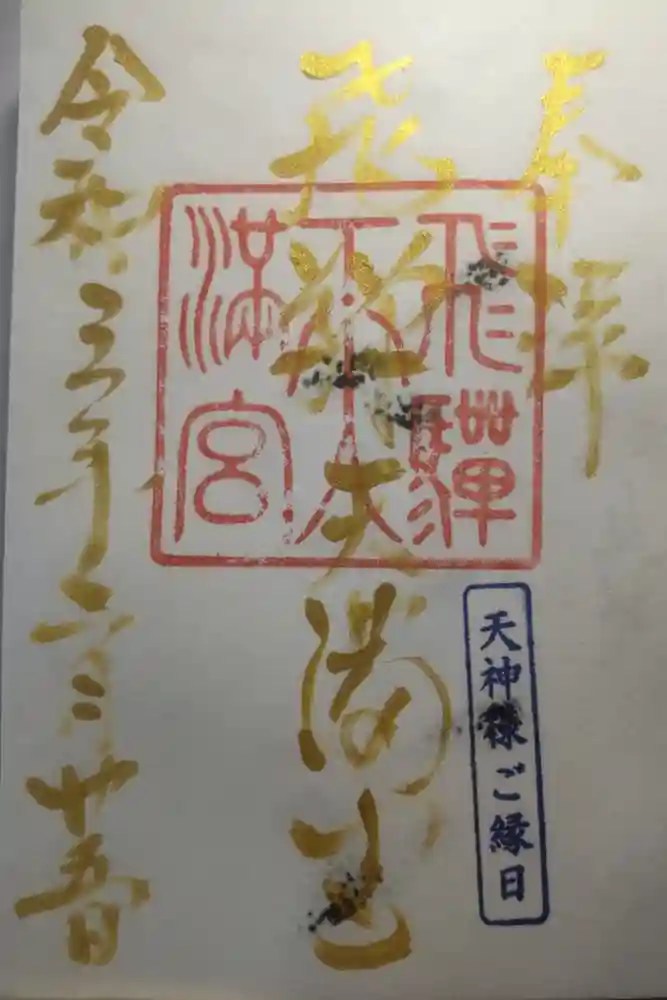 奉拝
飛騨天満宮
飛騨
天
満宮
天神様ご縁日
令和三年六月廿五日